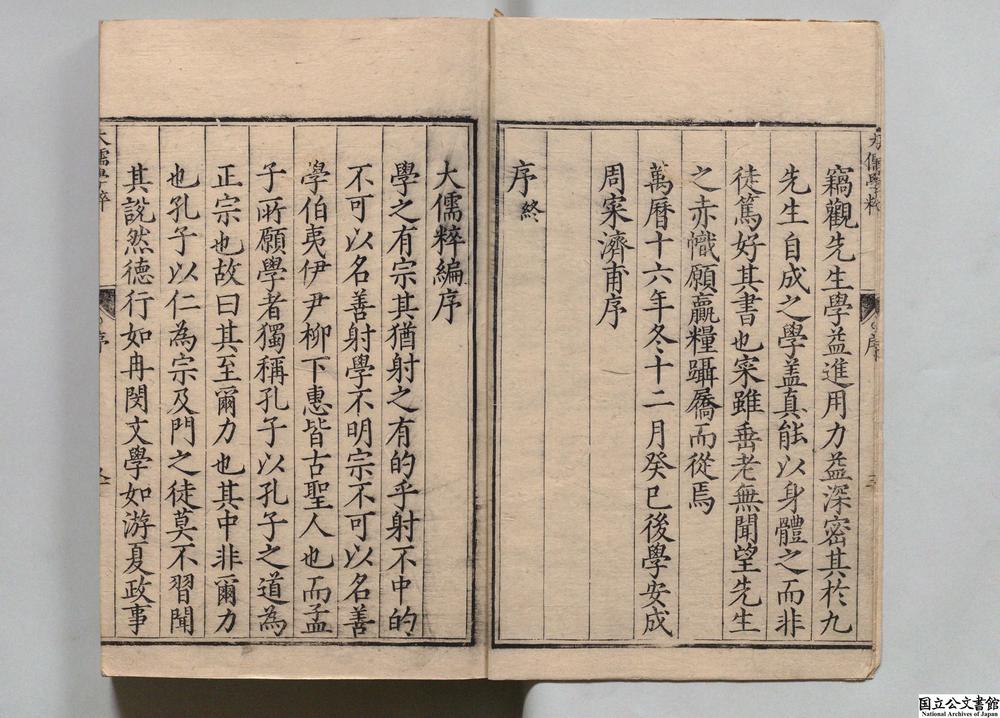 大儒學粹
序
三
竊觀先生學益進用力益深密其於九
先生自成之學盖真能以身體之而非
徒篤好其書也寀雖垂老無聞望先生
之赤幟願贏糧躡屩而從焉
萬曆十六年冬十二月癸巳後學安成
周寀濟甫序
序終
大儒粹編序
學之有宗其猶射之有的乎射不中的
不可以名善射學不明宗不可以名善
學伯夷伊尹柳下惠皆古聖人也而孟
子所願學者獨稱孔子以孔子之道為
正宗也故曰其至爾力也其中非爾力
也孔子以仁為宗及門之徒莫不習聞
其說然德行如冉閔文學如游夏政事
大儒學粹
序
国立公文書館
National Archives of Japan